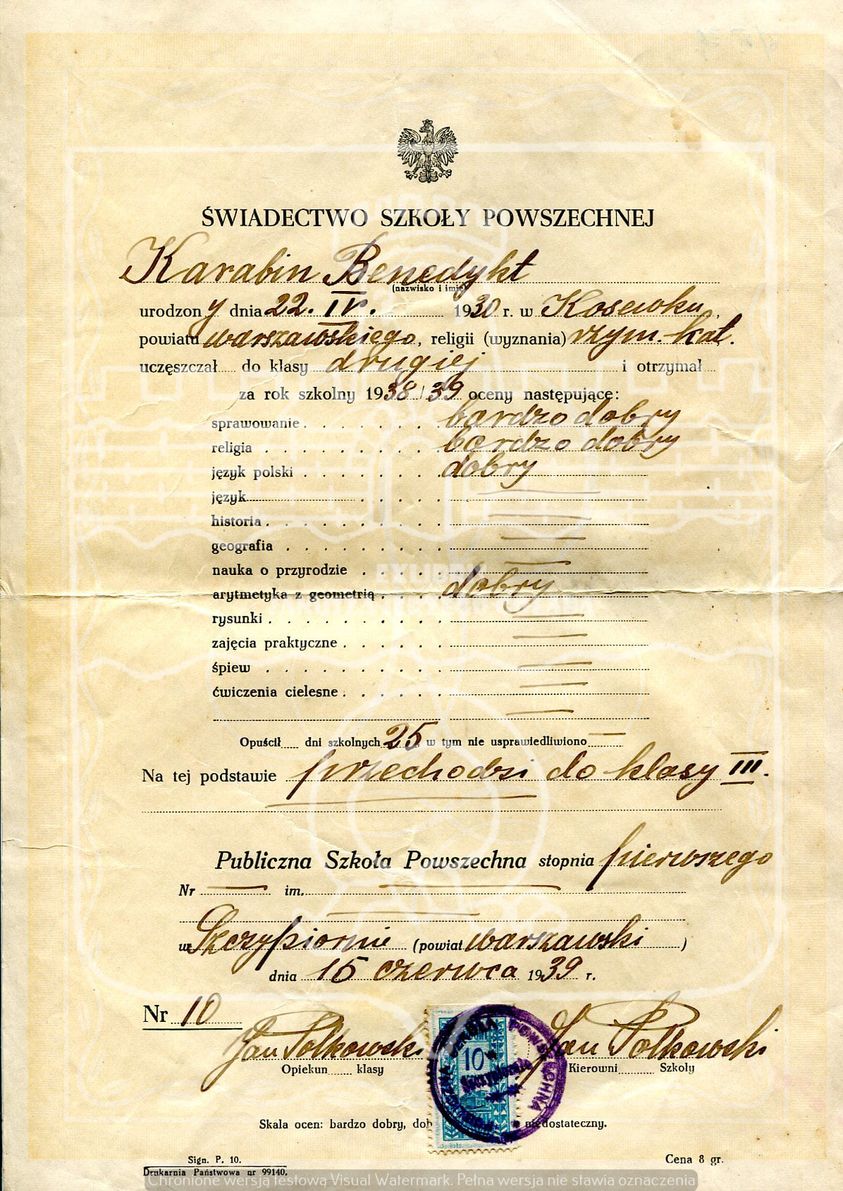 ŚWIADECTWO SZKOŁY POWSZECHNEJ
Karabin Benedykt
(nazwisko i imię)
urodzony dnia 22. IV. 1930 r. w Kosewku,
powiatu warszawskiego, religii (wyznania) rzym.-kat.
uczęszczał do klasy drugiej i otrzymał
za rok szkolny 1938/39 oceny następujące:
sprawowanie bardzo dobry
religia bardzo dobry
język polski dobry
język
historia
geografia
nauka o przyrodzie
arytmetyka z geometrią dobry
rysunki
zajęcia praktyczne
śpiew
ćwiczenia cielesne
Opuścił dni szkolnych 25 w tym nie usprawiedliwiono —
Na tej podstawie przechodzi do klasy III.
Publiczna Szkoła Powszechna stopnia pierwszego
Nr — im. —
w Szczypiornie (powiat warszawski)
dnia 15 czerwca 1939 r.
Nr 10
Jan Polkowski Jan Polkowski
Opiekun klasy Kierowni Szkoły
10
Skala ocen: bardzo dobry, dob niedostateczny.
Sign. P. 10. Cena 8 gr.
Drukarnia Państwowa nr 99140.
Chronione wersją testową Visual Watermark. Pełna wersja nie stawia oznaczenia